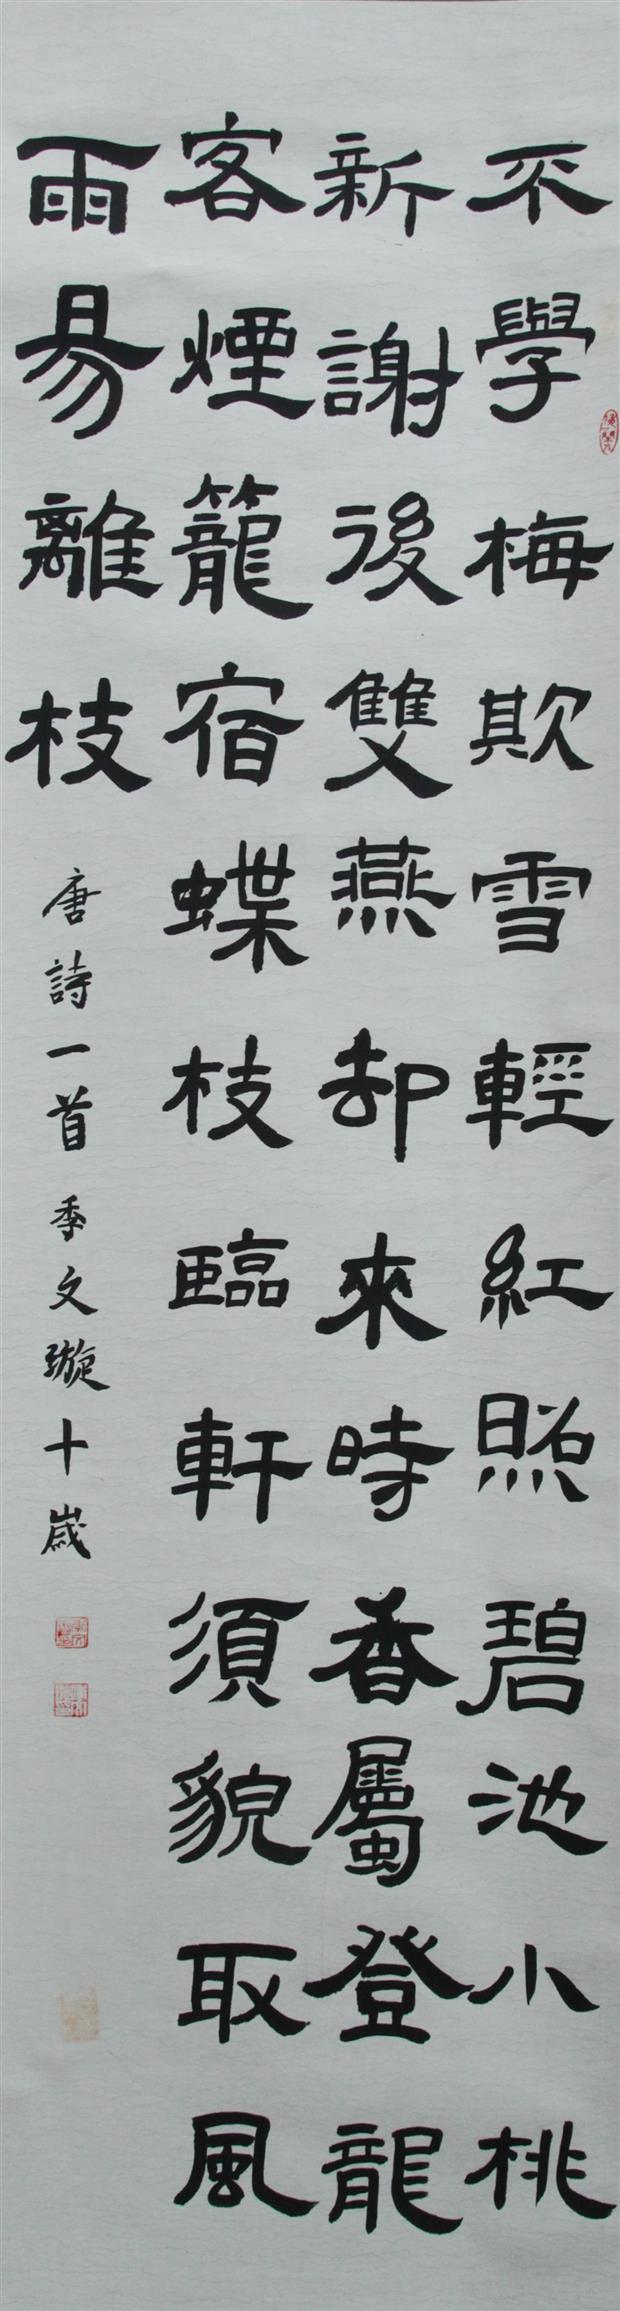 不學梅欺雪輕紅照碧池小桃
新謝後雙燕却來時香屬登龍
客煙籠宿蝶枝臨軒須貌取風
雨易離枝
唐詩一首季文璇十歲